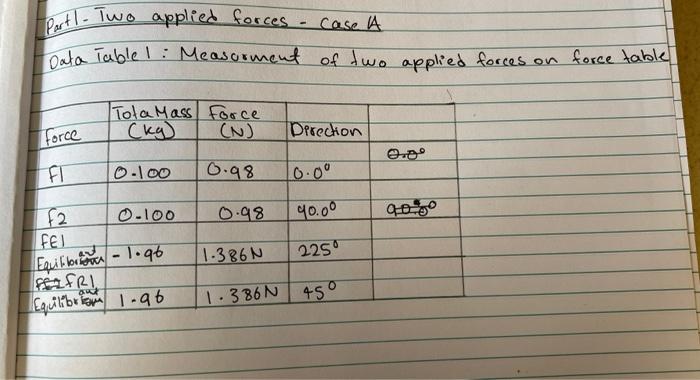 Part 1 - Two applied forces - case A
Data Table 1 : Measurment of two applied forces on force table
Force Total Mass (kg) Force (N) Direction
F1 0.100 0.98 0.0° 0.0°
F2 0.100 0.98 90.0° 90.0°
FE1 Equilibrant - 1.96 1.386N 225°
FR1 Equilibrant 1.96 1.386N 45°